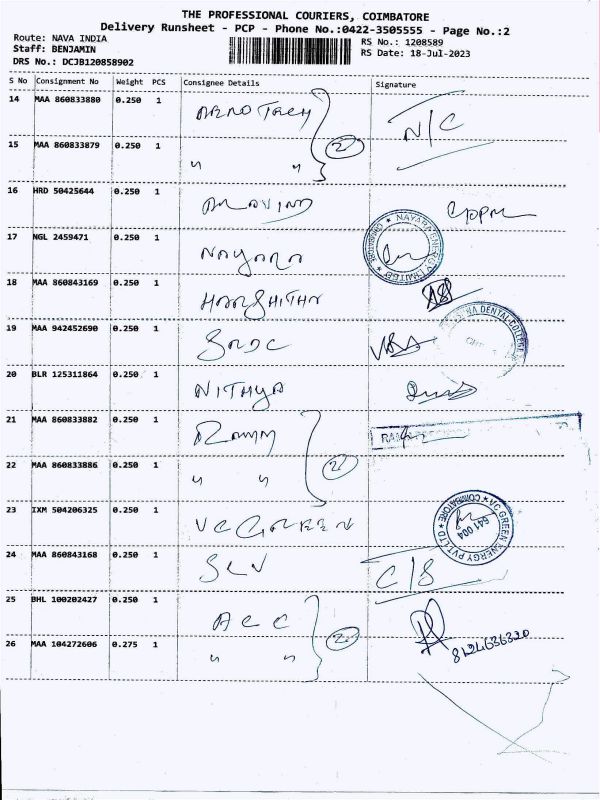 THE PROFESSIONAL COURIERS, COIMBATORE
Delivery Runsheet - PCP - Phone No.:0422-3505555 - Page No.:2
Route: NAVA INDIA
Staff: BENJAMIN
DRS No.: DCJB120858902
RS No.: 1208589
RS Date: 18-Jul-2023
S No Consignment No Weight PCS Consignee Details Signature
14 MAA 860833880 0.250 1 N/C
15 MAA 860833879 0.250 1 " " 2
16 HRD 50425644 0.250 1 ARAVIND
17 NGL 2459471 0.250 1 NAYARA NAYARA ENERGY LIMITED
18 MAA 860843169 0.250 1 HARSHITHA
19 MAA 942452690 0.250 1 SRDC DENTAL COLLEGE
20 BLR 125311864 0.250 1 NITHYA
21 MAA 860833882 0.250 1
22 MAA 860833886 0.250 1 " " 2
23 IXM 504206325 0.250 1 VC GREEN VC GREEN ENERGY PVT LTD COIMBATORE 641 004
24 MAA 860843168 0.250 1 SLV C/S
25 BHL 100202427 0.250 1 ACC
26 MAA 104272606 0.275 1 " " 2 8124636320